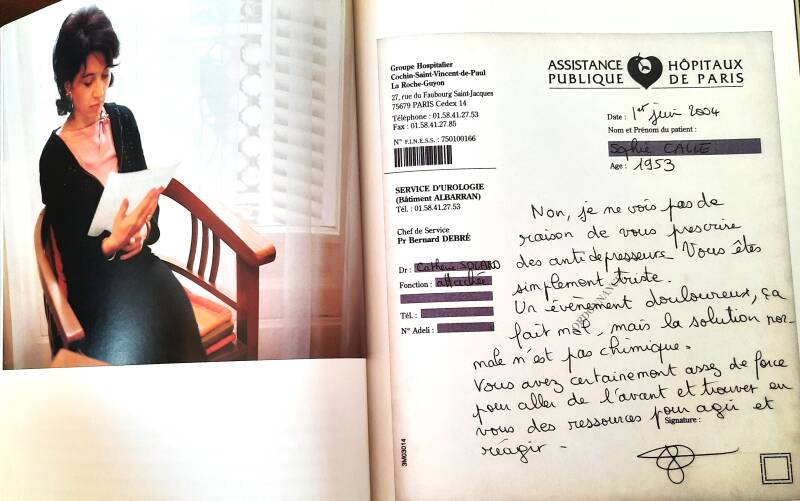 Groupe Hospitalier
Cochin-Saint-Vincent-de-Paul
La Roche-Guyon
27, rue du Faubourg Saint-Jacques
75679 PARIS Cedex 14
Téléphone : 01.58.41.27.53
Fax : 01.58.41.27.85
N° F.I.N.E.S.S. : 750100166
SERVICE D'UROLOGIE
(Bâtiment ALBARRAN)
Tél. : 01.58.41.27.53
Chef de Service
Pr Bernard DEBRÉ
Dr : Catherine SOLANO
Fonction : attachée
Tél. :
N° Adeli :
3M03014
ASSISTANCE PUBLIQUE
HÔPITAUX DE PARIS
Date : 1er juin 2004
Nom et Prénom du patient :
Sophie CALLE
Age : 1953
ORDONNANCE
Non, je ne vois pas de
raison de vous prescrire
des antidepresseurs. Vous êtes
simplement triste.
Un évènement douloureux, ça
fait mal, mais la solution nor-
male n'est pas chimique.
Vous avez certainement assez de force
pour aller de l'avant et trouver en
vous des ressources pour agir et
réagir.
Signature :